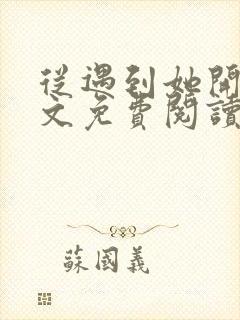 從遇到她開
文免費閱讀
蘇國義